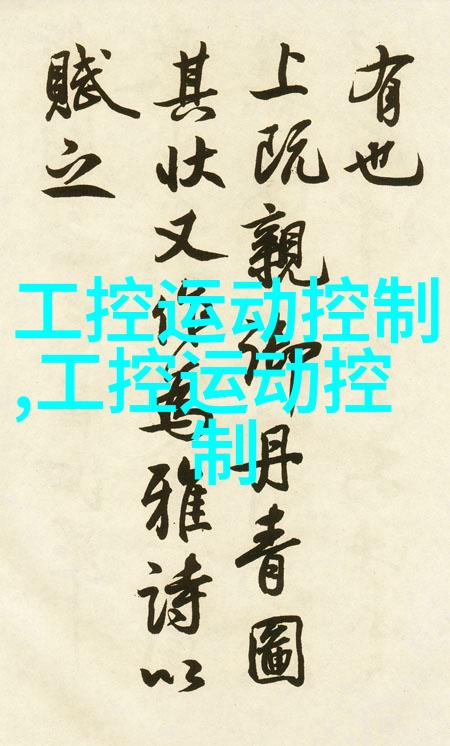 有也
上既親御丹青圖
其狀又爲雅詩以
賦之
工控运动控制
,工控运动控
制